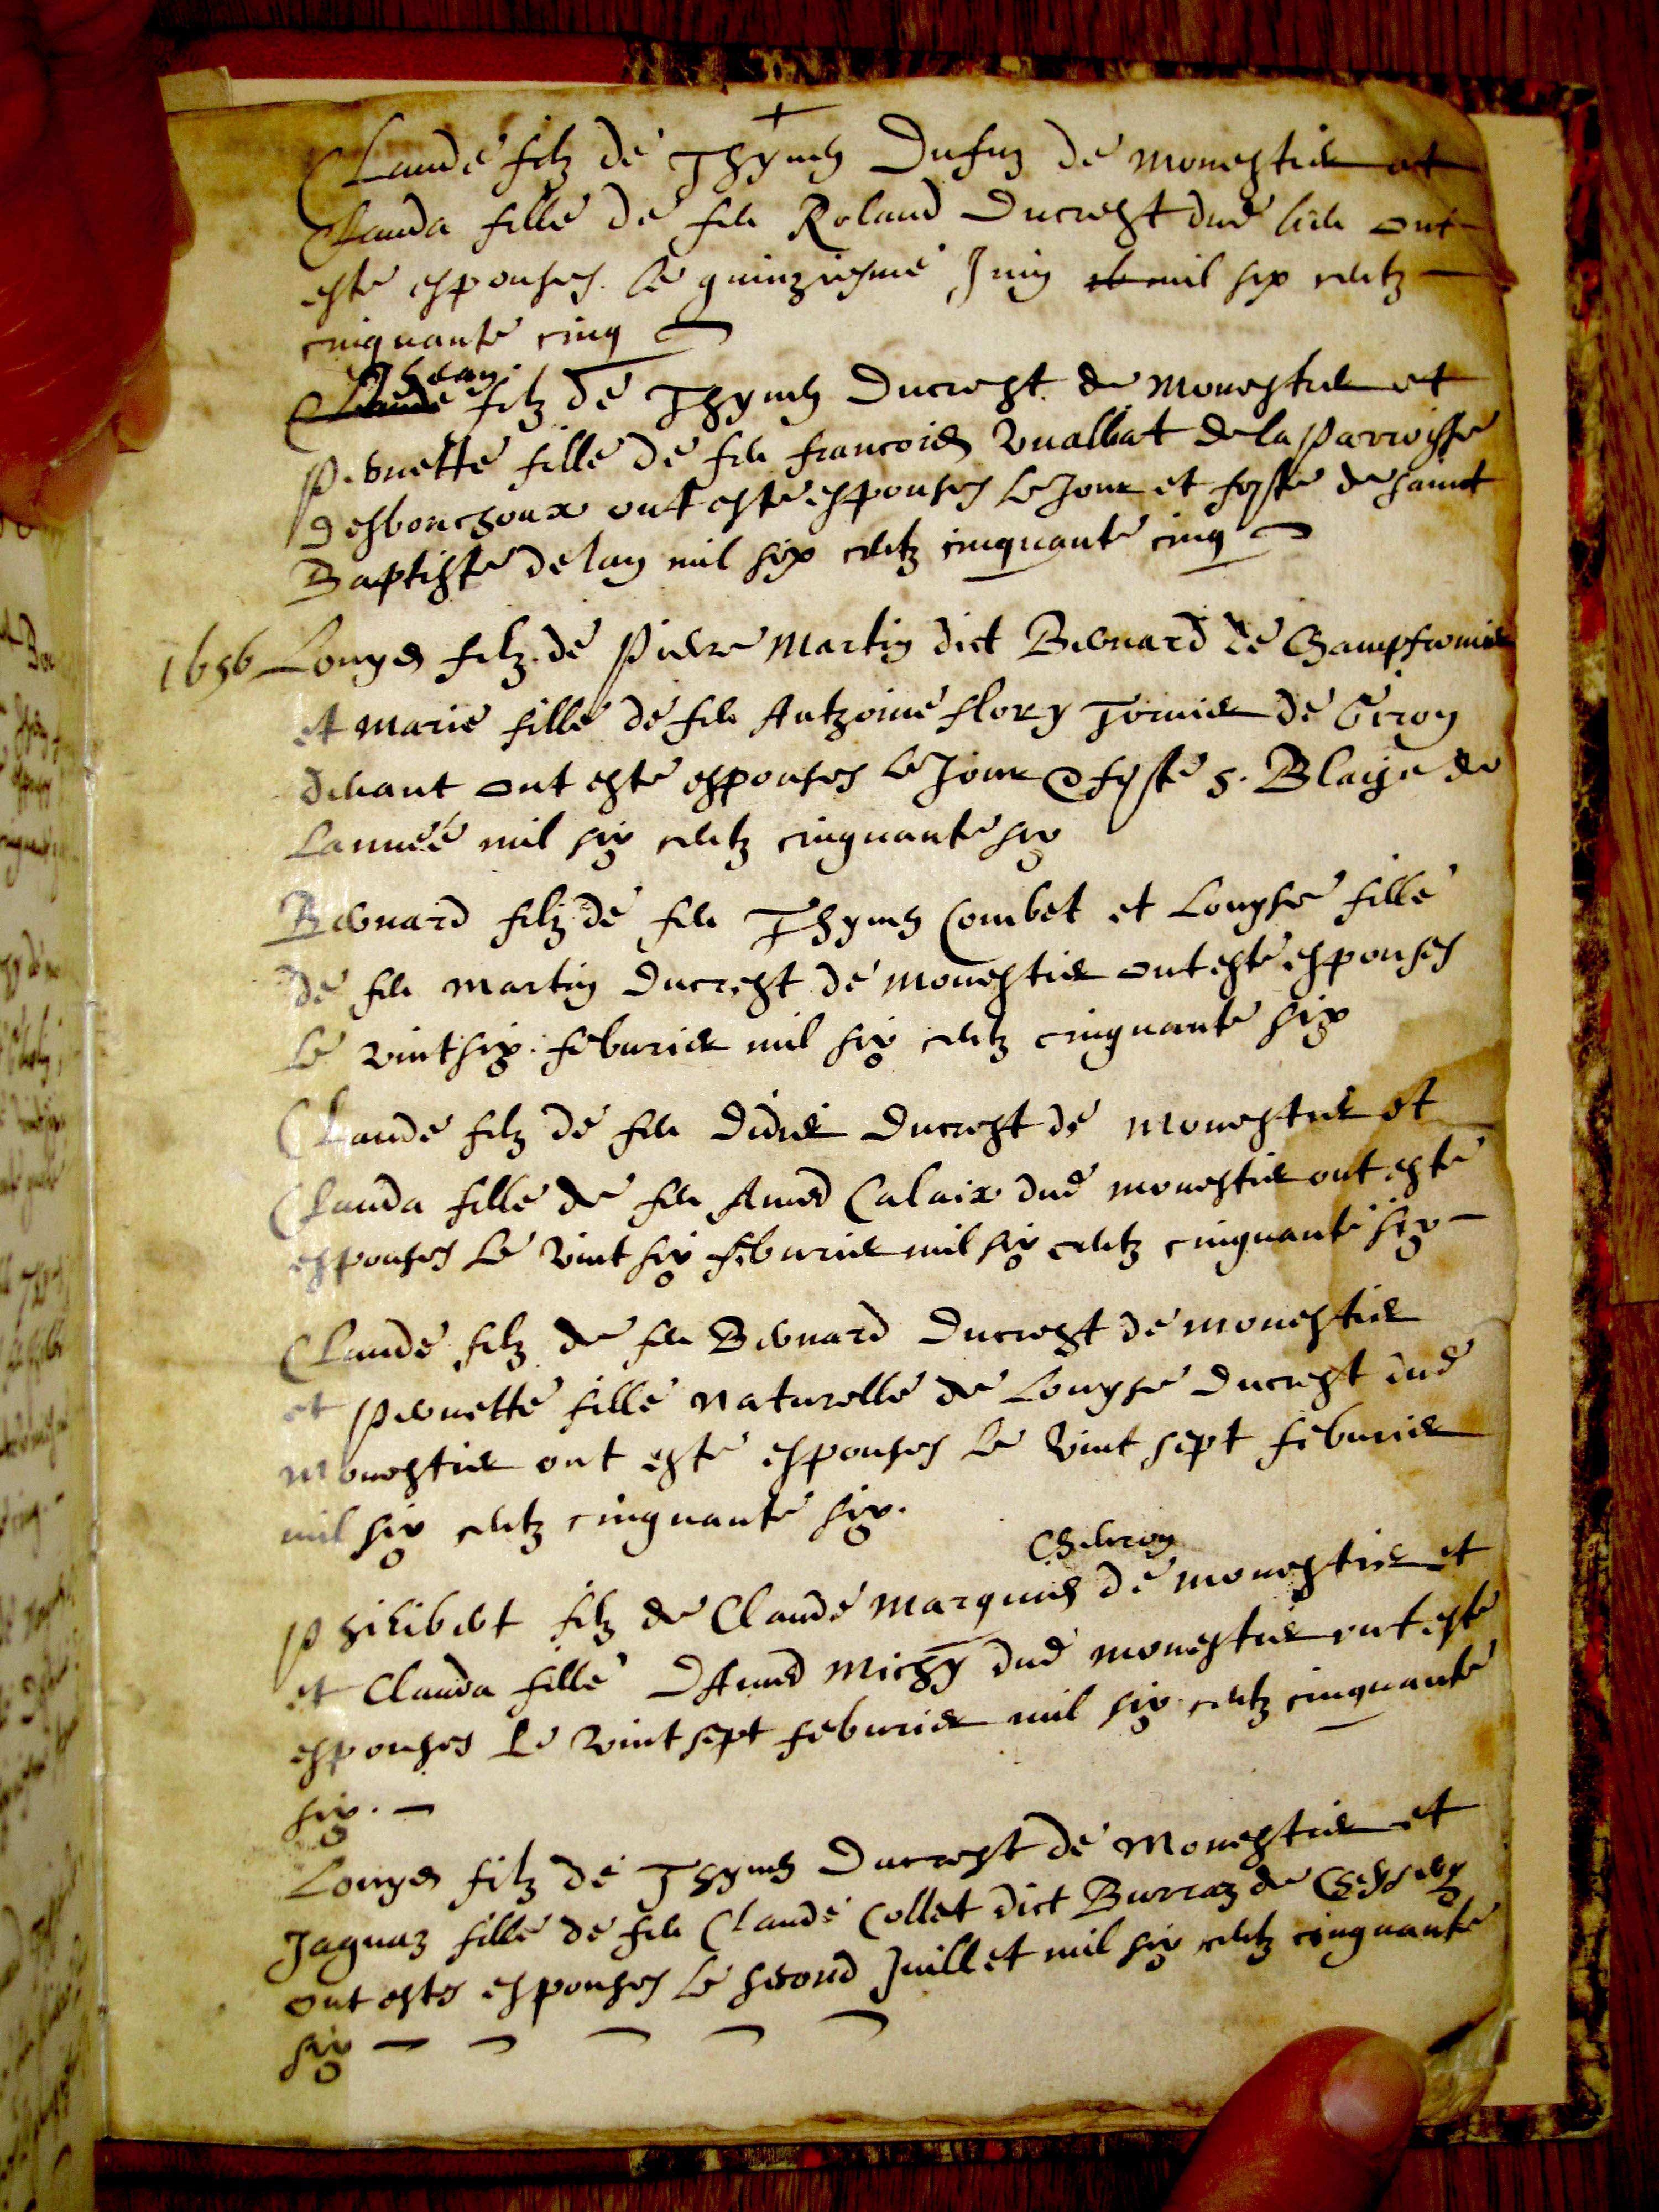 +
Claude filz de Thyven Dufuz de Monestier et
Clauda fille de feu Roland Ducrest dud lieu ont
esté esponses le quinziesme Juin mil six centz
cinquante cinq
Jhean
Claude filz de Thyven Ducrest de Monestier et
Pernette fille de feu francois Vualliat de la parroisse
desbouchoux ont esté esponses le Jour et feste de sainct
Baptiste de lan mil six centz cinquante cinq
1656 Louys filz de Pierre Martin dict Bernard de Champfromier
et Marie fille de feu Anthoine flory Tornier de Giron
devant ont esté esponses le Jour & feste S. Blaise de
lannéé mil six centz cinquante six
Bernard filz de feu Thyven Combet et Louyse fille
de feu Martin Ducrest de Monestier ont esté esponses
le vint six feburier mil six centz cinquante six
Claude filz de feu Didier Ducrest de Monestier et
Clauda fille de feu Amed Calaix dud Monestier ont esté
esponses le vint six feburier mil six centz cinquante six
Claude filz de feu Bernard Ducrest de Monestier
et Pernette fille naturelle de Louyse Ducrest dud
Monestier ont esté esponses le vint sept feburier
mil six centz cinquante six.
Chevron
Philibert filz de Claude Marquis de Monestier et
et Clauda fille DAmed Michy dud Monestier ont esté
esponses le vint sept feburier mil six centz cinquante
six.
Louys filz de Thyven Ducrest de Monestier et
Jaquaz fille de feu Claude Collet dict Burraz de Chesery
ont estes esponses le second Juillet mil six centz cinquante
six